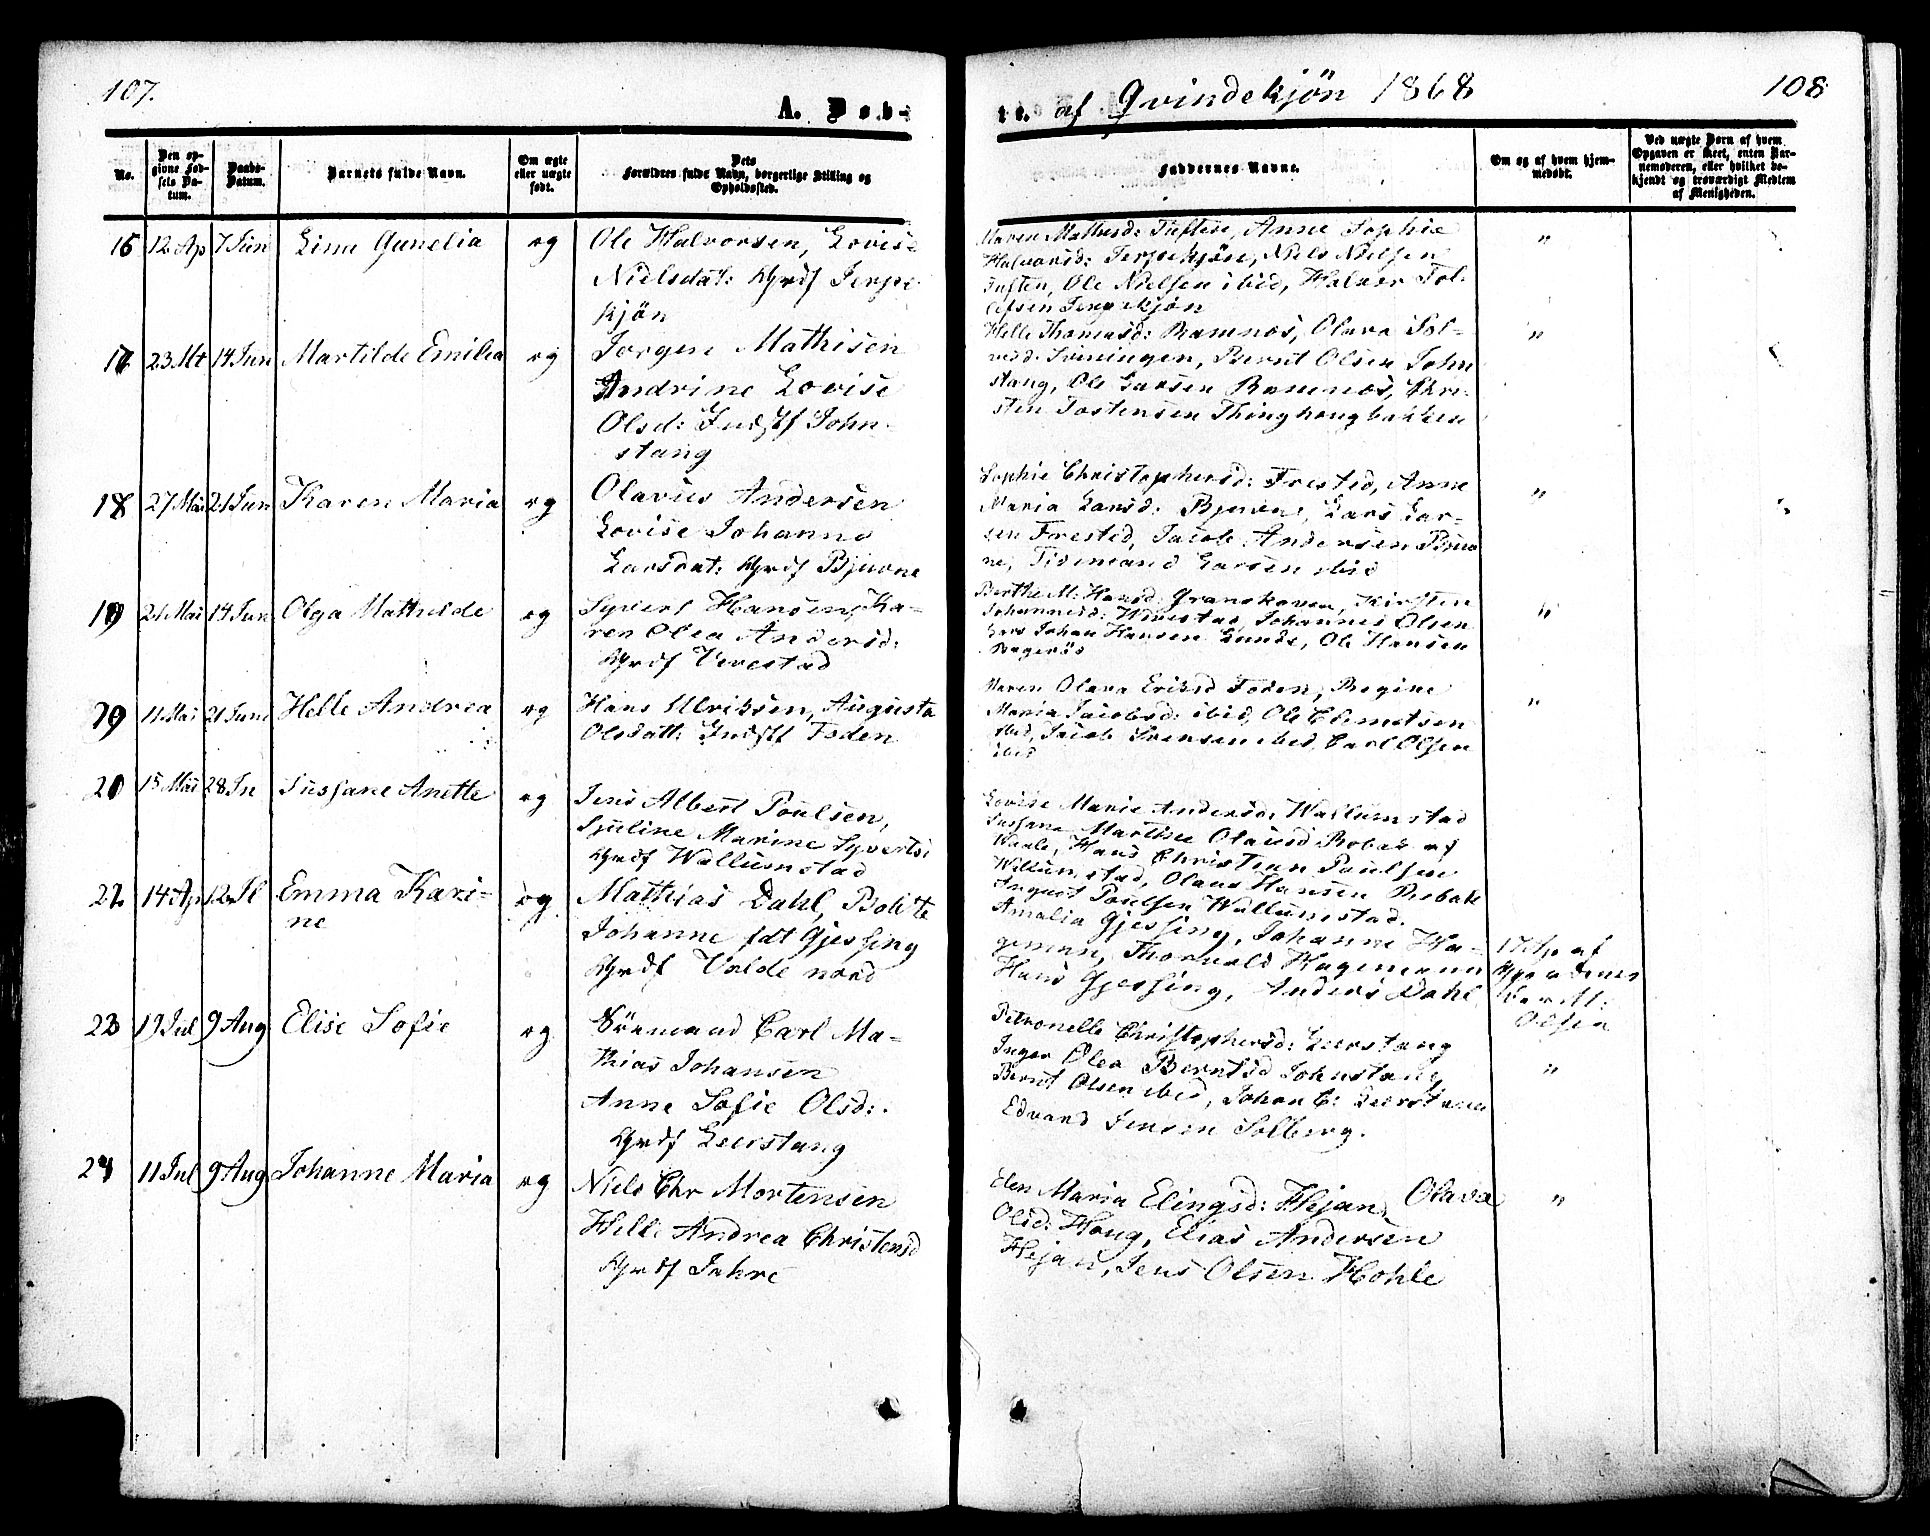 107.
A. Døb-
te. af Qvindekjön 1868
108
No.
Den op-
givne Fød-
sels Da-
tum.
Daabs-
Datum.
Barnets fulde Navn.
Om ægte
eller uægte
født.
Dets
Forældres fulde Navn, borgerlige Stilling og
Opholdssted.
Faddernes Navne.
Om og af hvem hjem-
medøbt.
Ved uægte Børn af hvem
Opgaven er skeet, enten Bar-
nemoderen, eller hvilket be-
kjendt og troværdigt Medlem
af Menigheden.
16 12 Ap 7 Jun Lina Gunelia ag
Ole Halvorsen, Lovise
Nielsdat: Grdf Jerpe
kjön
Maren Mathisd: Tuften, Anne Sophie
Halvorsd: Jerpekjön, Niels Nielsen
Tuften, Ole Nielsen ibid, Halvor Tol-
lefsen Jerpekjön
"
17 23 Mt 14 Jun Martilde Emilie ag
Jorgen Mathisen
Andrine Lovise
Olsd: Indst John-
stang
Helle Thomasd: Ramnes, Olava
Bernt Olsen John
stang, Ole Larsen Ramnes, Chri-
sten Tostensen Thinghougbakken
"
18 27 Mai 21 Jun Karen Maria ag
Olavus Andersen
Lovise Johanne
Larsdat: Grdf Bjuerne
Sophie Christophersd: Frested, Anne
Maria Larsd: Lars Lar-
sen Frested, Jacob Andersen
ne, Tidemand Larsen ibid
"
19 21 Mai 14 Jun Olga Mathilde ag
Syvert Hansen, Ka-
ren Olea Andersd:
Grdf Virestad
Berthe M: Hansd: Granskoven, Kirsten
Johannesd: Wirestad, Johannes Olsen
Lars Johan Hansen Lunde, Ole Hansen
"
79 11 Mai 21 Juni Helle Andrea ag
Hans Ulriksen, Augusta
Olsdatt: Indst Foden
Maren Olava Eriksd Foden, Regine
Maria Jacobsd: ibid, Ole Clemetsen
ibid, Jacob Svensen ibid, Carl Olsen
ibid
"
20 15 Mai 28 Jn Sussane Anette ag
Jens Albert Poulsen,
Sjuline Marine Syverts:
Grdf Wallumstad
Lovise Marie Andersd: Wallumstad
Sussane Marthea Olausd Robak af
Waale, Hans Christian Paulsen
Wallumstad, Olaus Hansen Robak
August Poulsen Wallumstad.
22 14 Ap 12 Jl Emma Kari-
ne
ag
Mathias Dahl, Bolette
Johanne fdt Gjessing
Grdf Valde nord
Amalia Gjessing, Johanne Ha-
geman, Thorvald Hageman
Hans Gjessing, Anders Dahl
17 Ap af
Olsen
23 19 Jul 9 Aug Elise Sofie ag
Sömand Carl Ma-
thias Johansen
Anne Sofie Olsd:
Grdf Leerstang
Petronelle Christophersd: Leerstang
Inger Olea Berntsd Johnstang
Bernt Olsen ibid, Johan C: Leerstang
Edvard Jensen Solberg.
"
24 11 Jul 9 Aug Johanne Maria ag
Niels Chr Mortensen
Helle Andrea Christensd
Grdf Jahre
Elen Maria Elingsd: Hejan, Olava
Olsd: Houg, Elias Andersen
Hejan, Jens Olsen Hohle
"